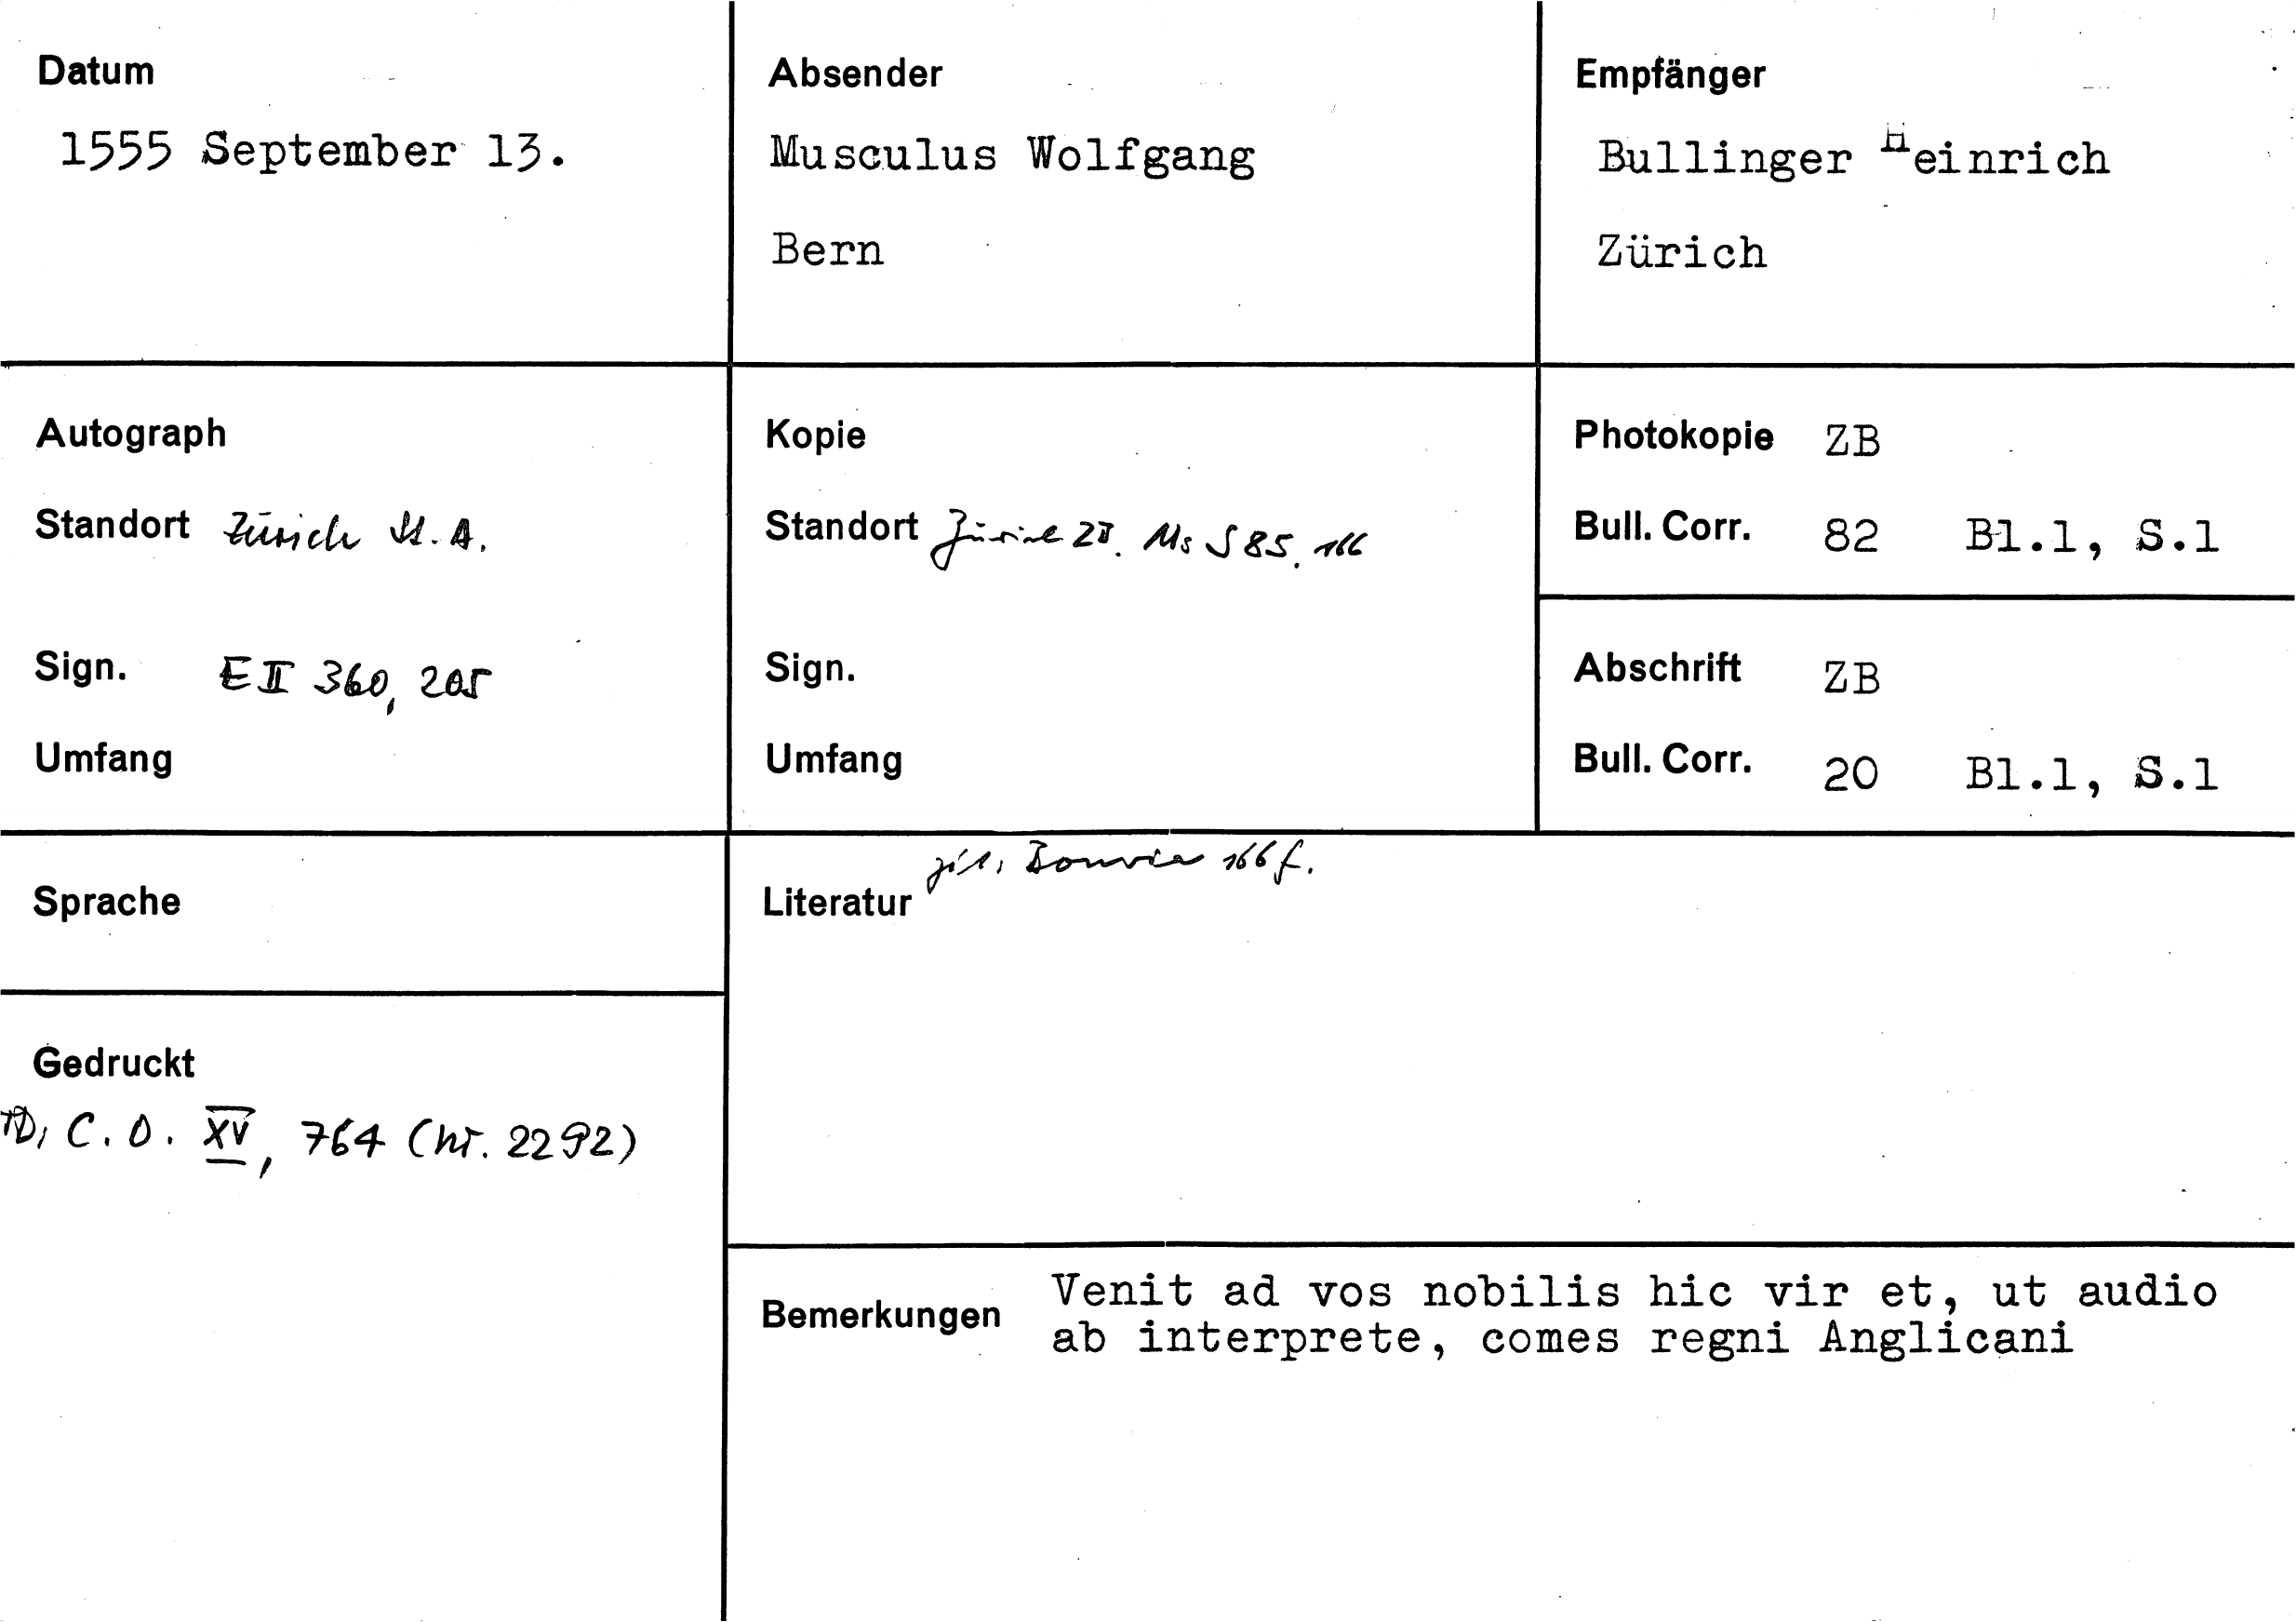 Datum
1555 September 13.
Absender
Musculus Wolfgang
Bern
Empfänger
Bullinger Heinrich
Zürich
Autograph
Standort Zürich St. A.
Sign. E II 360, 205
Umfang
Kopie
Standort Zürich ZB. Ms S 85, 166
Sign.
Umfang
Photokopie ZB
Bull. Corr. 82 Bl.1, S.1
Abschrift ZB
Bull. Corr. 20 Bl.1, S.1
Sprache
Gedruckt
C. O. XV, 764 (nr. 2292)
zit. 166 f.
Literatur
Bemerkungen Venit ad vos nobilis hic vir et, ut audio
ab interprete, comes regni Anglicani